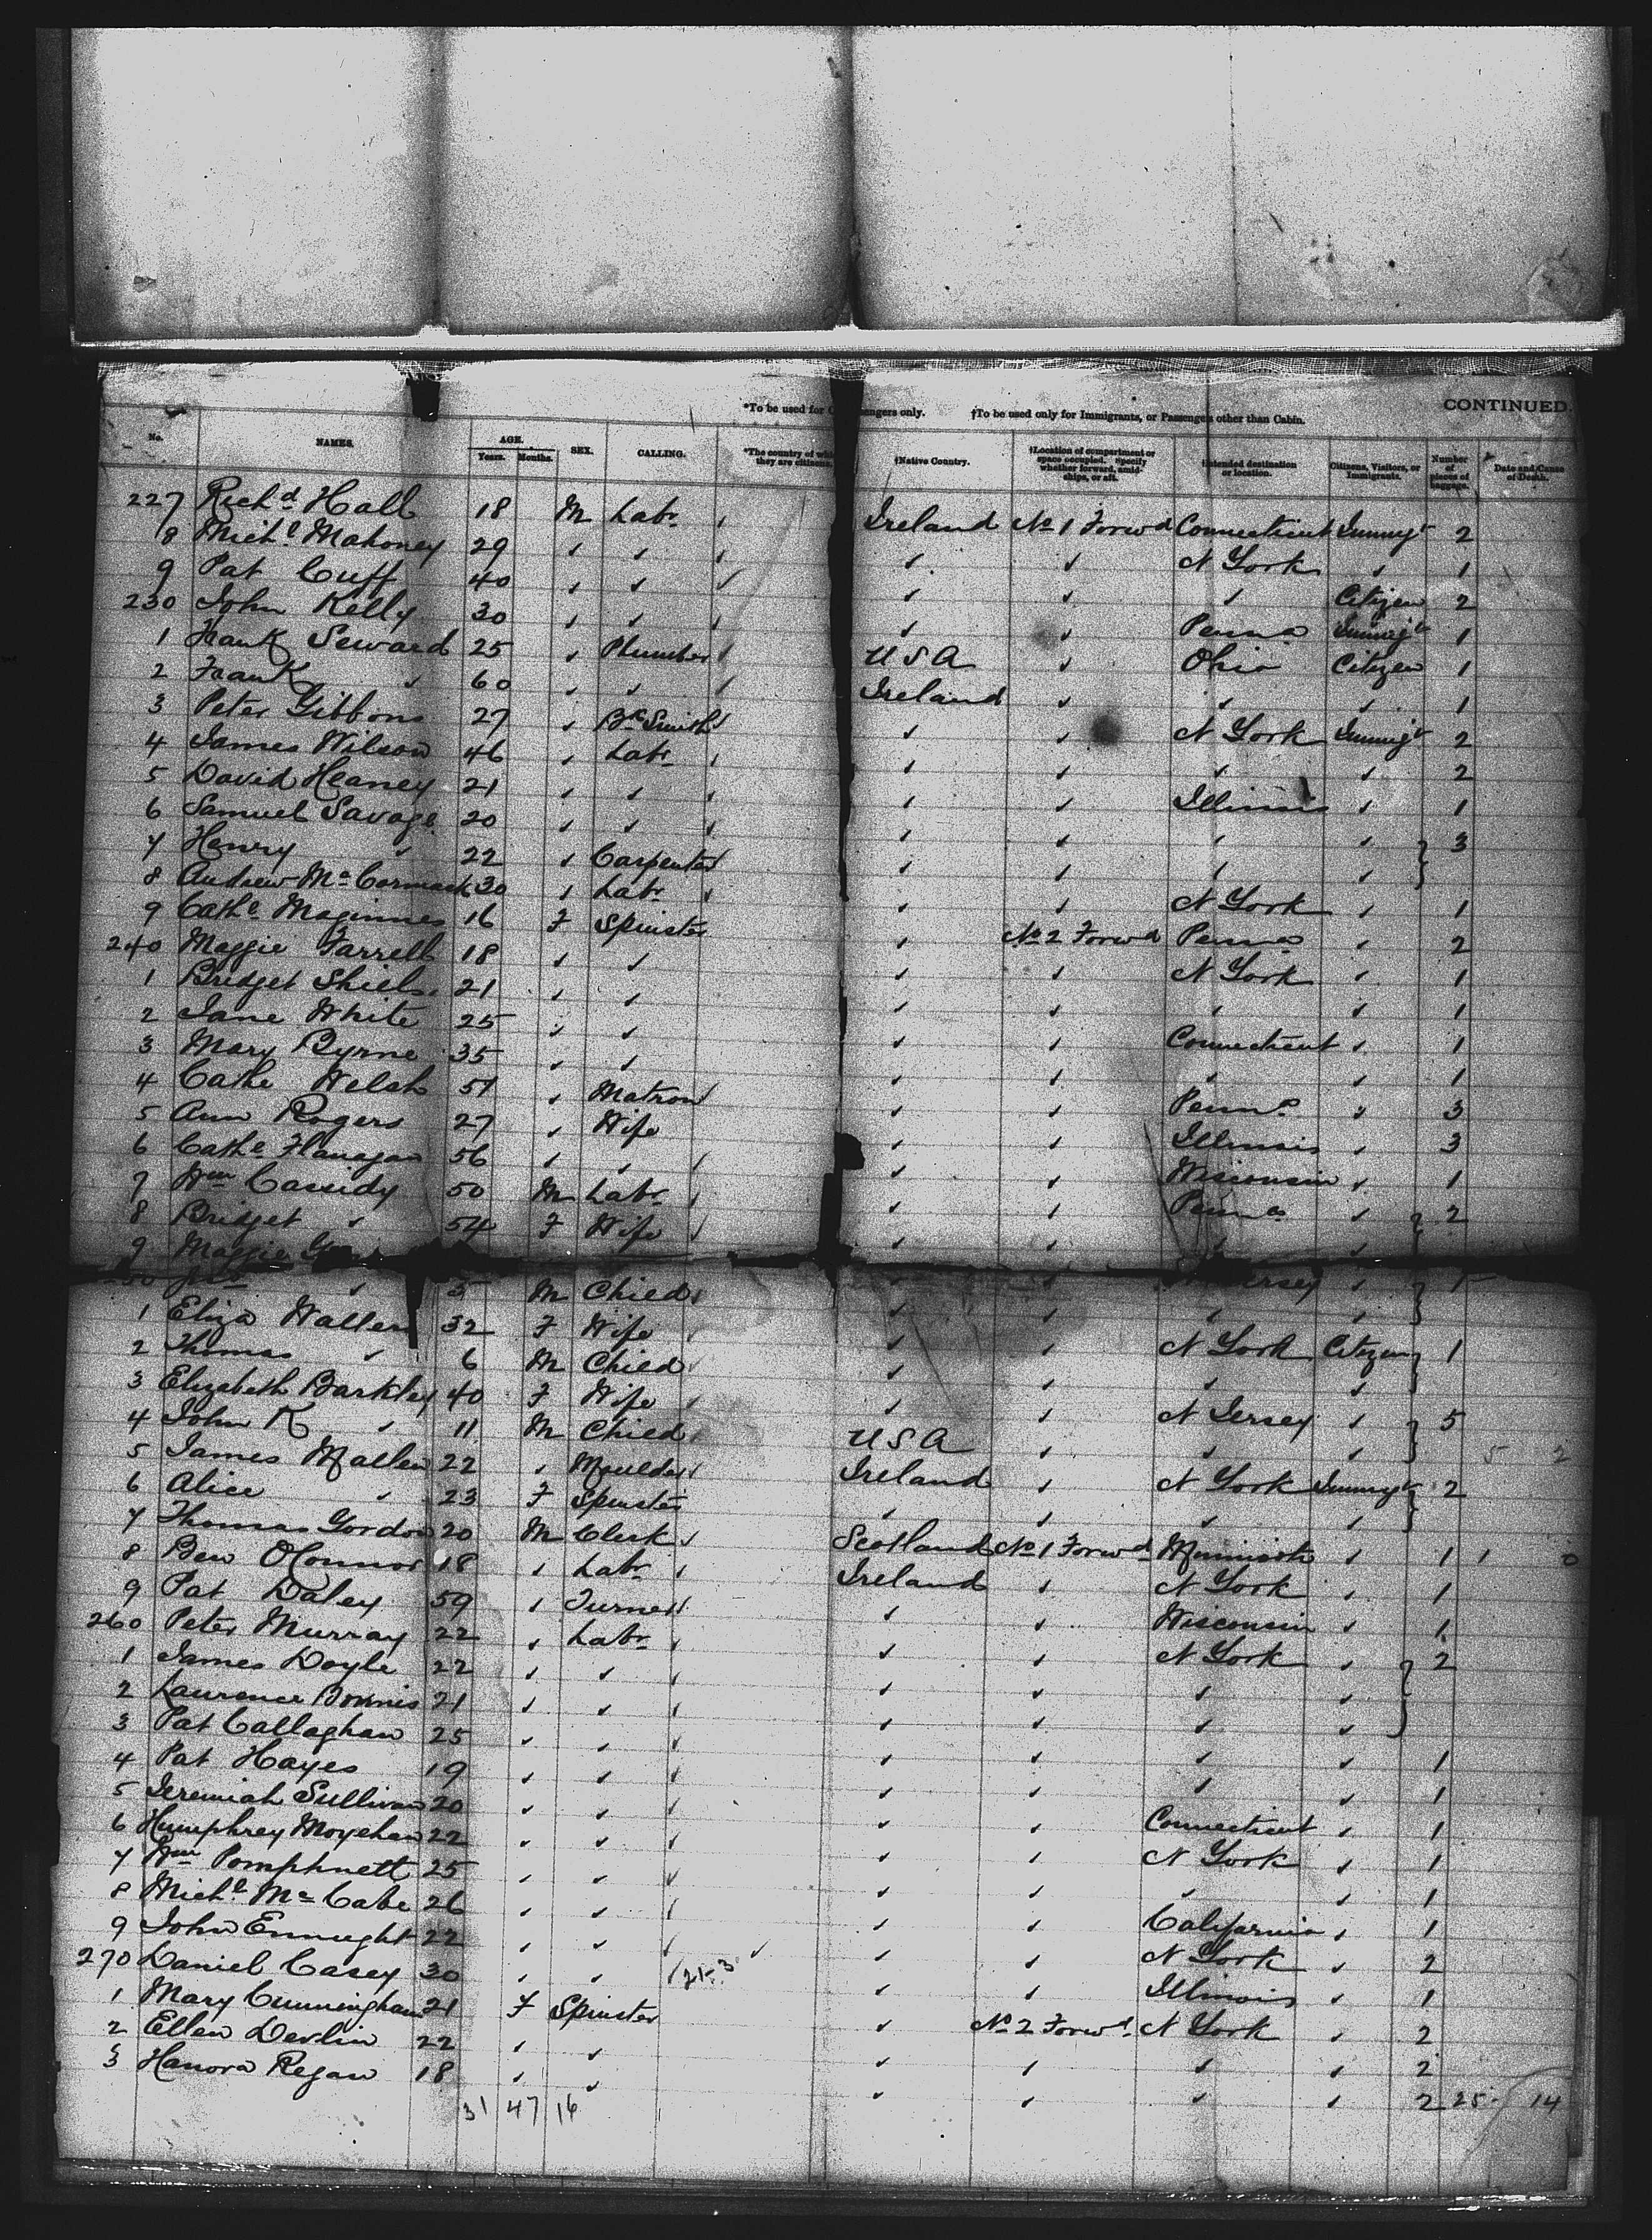 *To be used for C engers only. †To be used only for Immigrants, or Passengers other than Cabin. CONTINUED.
No. NAMES. AGE. Years. Months. SEX. CALLING. *The country of wh they are citizens. †Native Country. †Location of compartment or space occupied. Specify whether forward, amidships, or aft. †Intended destination or location. Citizens, Visitors, or Immigrants. Number of pieces of baggage. Date and Cause of Death.
227 Richd Hall 18 M Labr Ireland No 1 Forwd Connecticut Immigt 2
8 Michl Mahoney 29 " " " " N York " 1
9 Pat Cuff 40 " " " " " Citizen 2
230 John Kelly 30 " " " " Penna Immigt 1
1 Frank Seward 25 " Plumber USA " Ohio Citizen 1
2 Frank " 60 " " Ireland " " " 1
3 Peter Gibbons 27 " Bk Smith " " N York Immigt 2
4 James Wilson 46 " Labr " " " " 2
5 David Heaney 21 " " " " Illinois " 1
6 Samuel Savage 20 " " " " " " 3
7 Henry " 22 " Carpenter " " " "
8 Andrew McCormack 30 " Labr " " N York " 1
9 Cathe Maginnes 16 F Spinster " No 2 Forwd Penna " 2
240 Maggie Farrell 18 " " " " N York " 1
1 Bridget Shiels 21 " " " " " " 1
2 Jane White 25 " " " " Connecticut " 1
3 Mary Byrne 35 " " " " " " 1
4 Cathe Welsh 51 " Matron " " Penna " 3
5 Ann Rogers 27 " Wife " " Illinois " 3
6 Cathe Flanagan 56 " " " " Wisconsin " 1
7 Wm Cassidy 50 M Labr " " Penna " 2
8 Bridget " 54 F Wife " " " "
9 Maggie ersey " 1
" 5 M Child " " " "
1 Eliza Wallen 32 F Wife " " N York Citizen 1
2 Thomas " 6 M Child " " " "
3 Elizabeth Barkley 40 F Wife " " N Jersey " 5
4 John K " 11 M Child USA " " " 5 2
5 James Mallen 22 " Moulder Ireland " N York Immigt 2
6 Alice " 23 F Spinster " " " "
7 Thomas Gordon 20 M Clerk Scotland No 1 Forwd " 1 1 0
8 Ben OConnor 18 " Labr Ireland " N York " 1
9 Pat Daley 59 " Turner " " Wisconsin " 1
260 Peter Murray 22 " Labr " " N York " 2
1 James Doyle 22 " " " " " "
2 Laurence 21 " " " " " "
3 Pat Callaghan 25 " " " " " " 1
4 Pat Hayes 19 " " " " " " 1
5 Jeremiah Sullivan 20 " " " " Connecticut " 1
6 Humphrey Moyehan 22 " " " " N York " 1
7 Wm Pomphrett 25 " " " " " " 1
8 Michl McCabe 26 " " " " California " 1
9 John Enright 22 " " " " N York " 2
270 Daniel Casey 30 " " 21-3 " " Illinois " 1
1 Mary Cunningham 21 F Spinster " No 2 Forwd N York " 2
2 Ellen Devlin 22 " " " " " " 2
3 Hanora Regan 18 " " " " " " 2 25 14
31 47 16